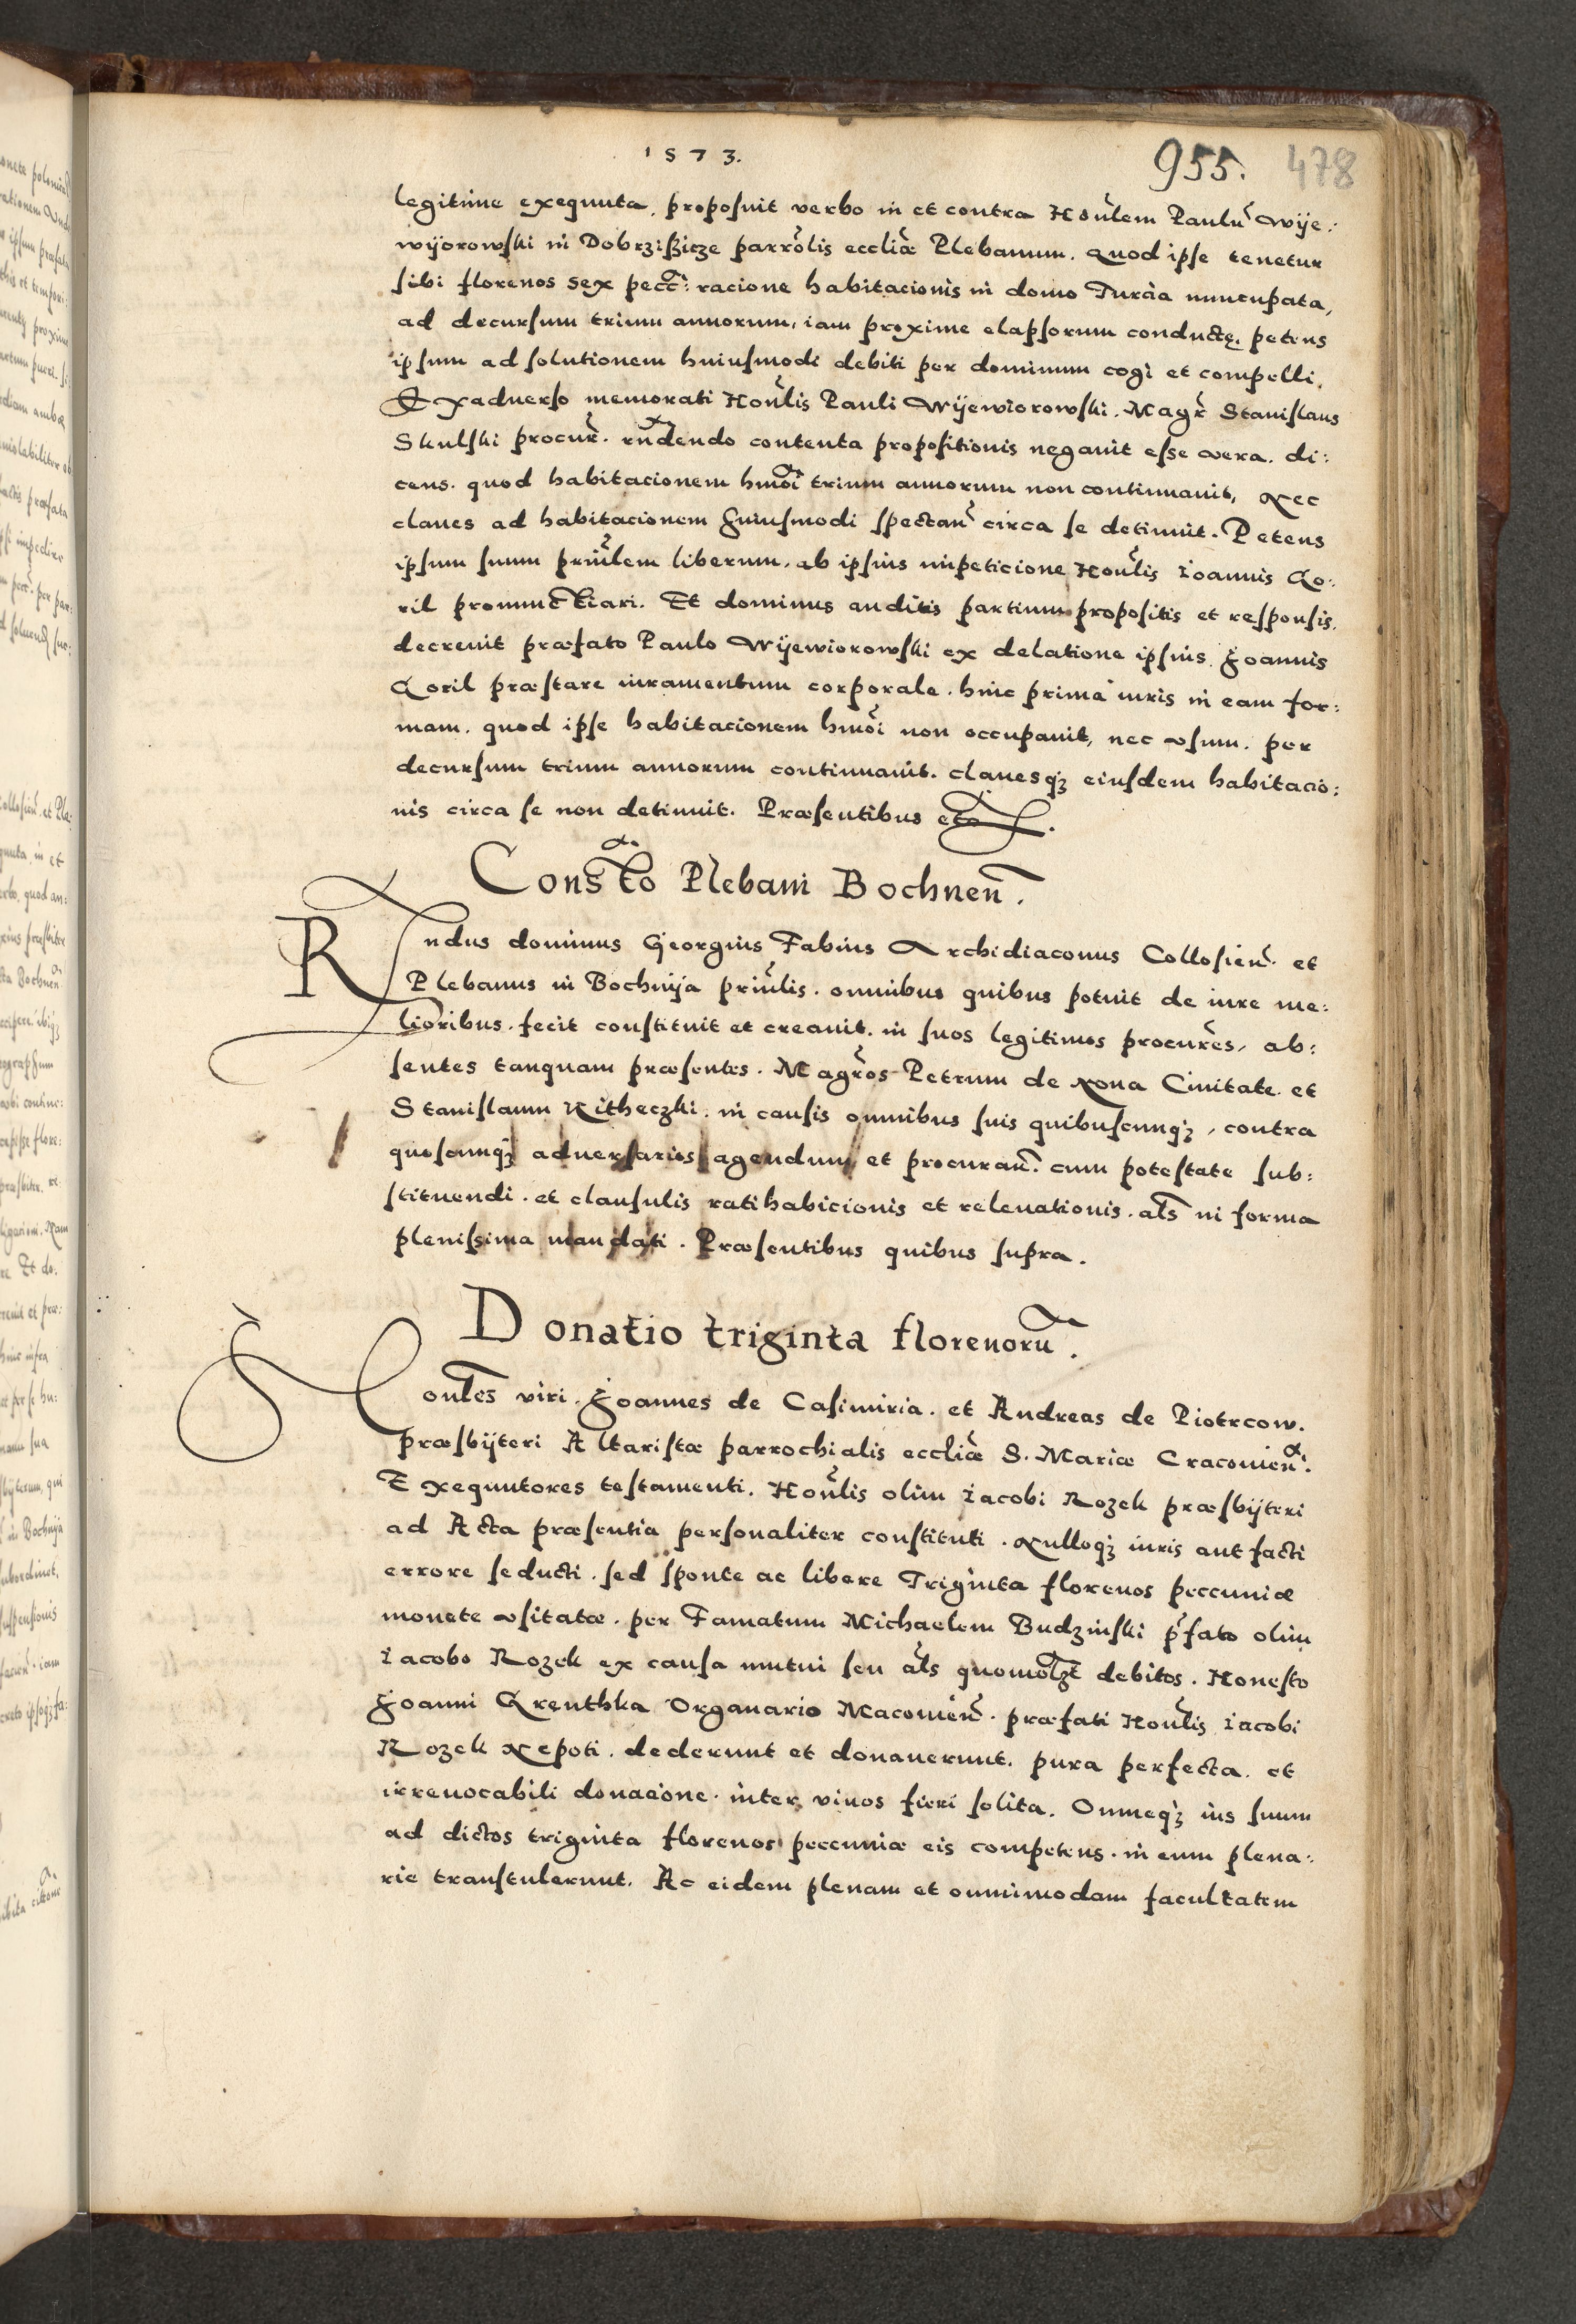 1573.
955. 478
legitime exequuta, proposuit verbo in et contra Honlem Paulu Wÿe:
wÿorowski in Dobrzißicze parrolis eccliæ Plebanum. quod ipse tenetur
sibi florenos sex pecc: racione habitacionis in domo Turcia nuncupata,
ad decursum trium annorum, iam proxime elapsorum conductę. petens
ipsum ad solutionem huiusmodi debiti per dominum cogi et compelli.
Exaduerso memorati Honlis Pauli Wÿewiorowski. Magr Stanislaus
Skulski procur. rndendo contenta propositionis negauit esse vera. di:
cens. quod habitacionem hmoi trium annorum non continuauit, Nec
claues ad habitacionem huiusmodi spectan circa se detinuit. Petens
ipsum suum prinlem liberum, ab ipsius impeticione Honlis Ioannis Go:
ril pronunctiari. Et dominus auditis partium propositis et responsis,
decreuit præfato Paulo Wÿewiorowski ex delatione ipsius Joannis
Goril præstare iuramentum corporale. hinc prima iuris in eam for:
mam. quod ipse habitacionem hmoi non occupauit, nec vsum. per
decursum trium annorum continuauit. clauesqz eiusdem habitacio:
nis circa se non detinuit. Præsentibus etc.
Consto Plebani Bochnen.
Rndus dominus Georgius Fabius Archidiaconus Collosien. et
Plebanus in Bochnÿa prinlis. omnibus quibus potuit de iure me:
lioribus. fecit constituit et creauit. in suos legitimos procures, ab:
sentes tanquam præsentes. Magros Petrum de Nona Ciuitate. et
Stanislaum Ritheczki. in causis omnibus suis quibuscunqz, contra
quoscunqz aduersarios agendum et procuran. cum potestate sub:
stituendi. et clausulis ratihabicionis et releuationis. als in forma
plenissima mandati. Præsentibus quibus supra.
Donatio triginta florenoru.
Honles viri. Joannes de Casimiria. et Andreas de Piotrcow.
præsbÿteri Altaristæ parrochialis eccliæ S. Mariæ Cracouien.
Exequutores testamenti. Honlis olim Iacobi Rozek præsbÿteri
ad Acta præsentia personaliter constituti. Nulloqz iuris aut facti
errore seducti. sed sponte ac libere Triginta florenos peccuniæ
monete vsitatæ. per Famatum Michaelem Budzinski pfato olim
Iacobo Rozek ex causa mutui seu als quomolzt debitos. Honesto
Joanni Grenthka Organario Macouien. præfati Honlis Iacobi
Rozek Nepoti. dederunt et donauerunt. pura perfecta. et
irreuocabili donacione. inter viuos fieri solita. Omneqz ius suum
ad dictos triginta florenos peccuniæ eis competens. in eum plena:
rie transtulerunt. Ac eidem plenam et omnimodam facultatem